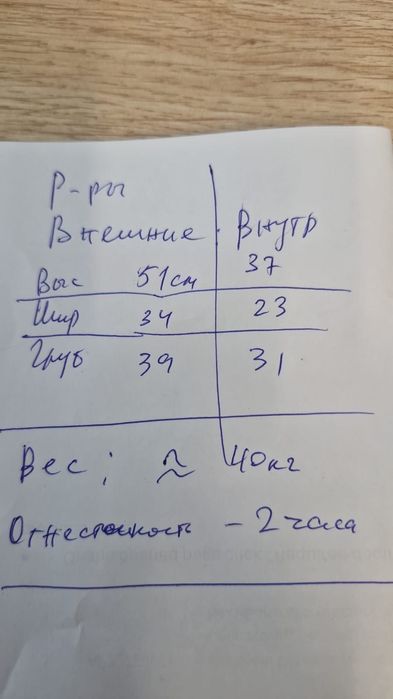 Р-ры
Внешние. Внутр
Выс 51см 37
Шир 34 23
Глуб 39 31
Вес: ≈ 40кг
Огнестойкость - 2 часа